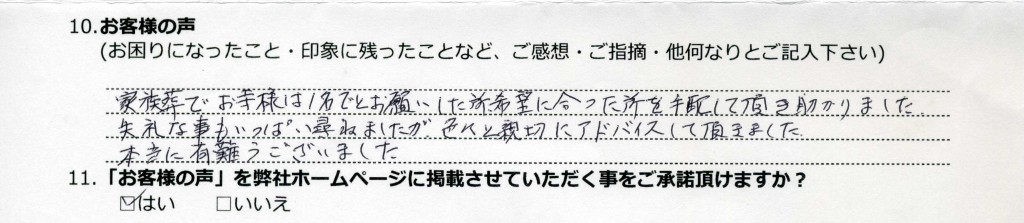 10.お客様の声
(お困りになったこと・印象に残ったことなど、ご感想・ご指摘・他何なりとご記入下さい)
家族葬でお寺様は1名でとお願いした所希望に合った所を手配して頂き助かりました.
失礼な事もいっぱい尋ねましたが色々と親切にアドバイスして頂きました
本当に有難うございました
11.「お客様の声」を弊社ホームページに掲載させていただく事をご承諾頂けますか？
☑はい □いいえ